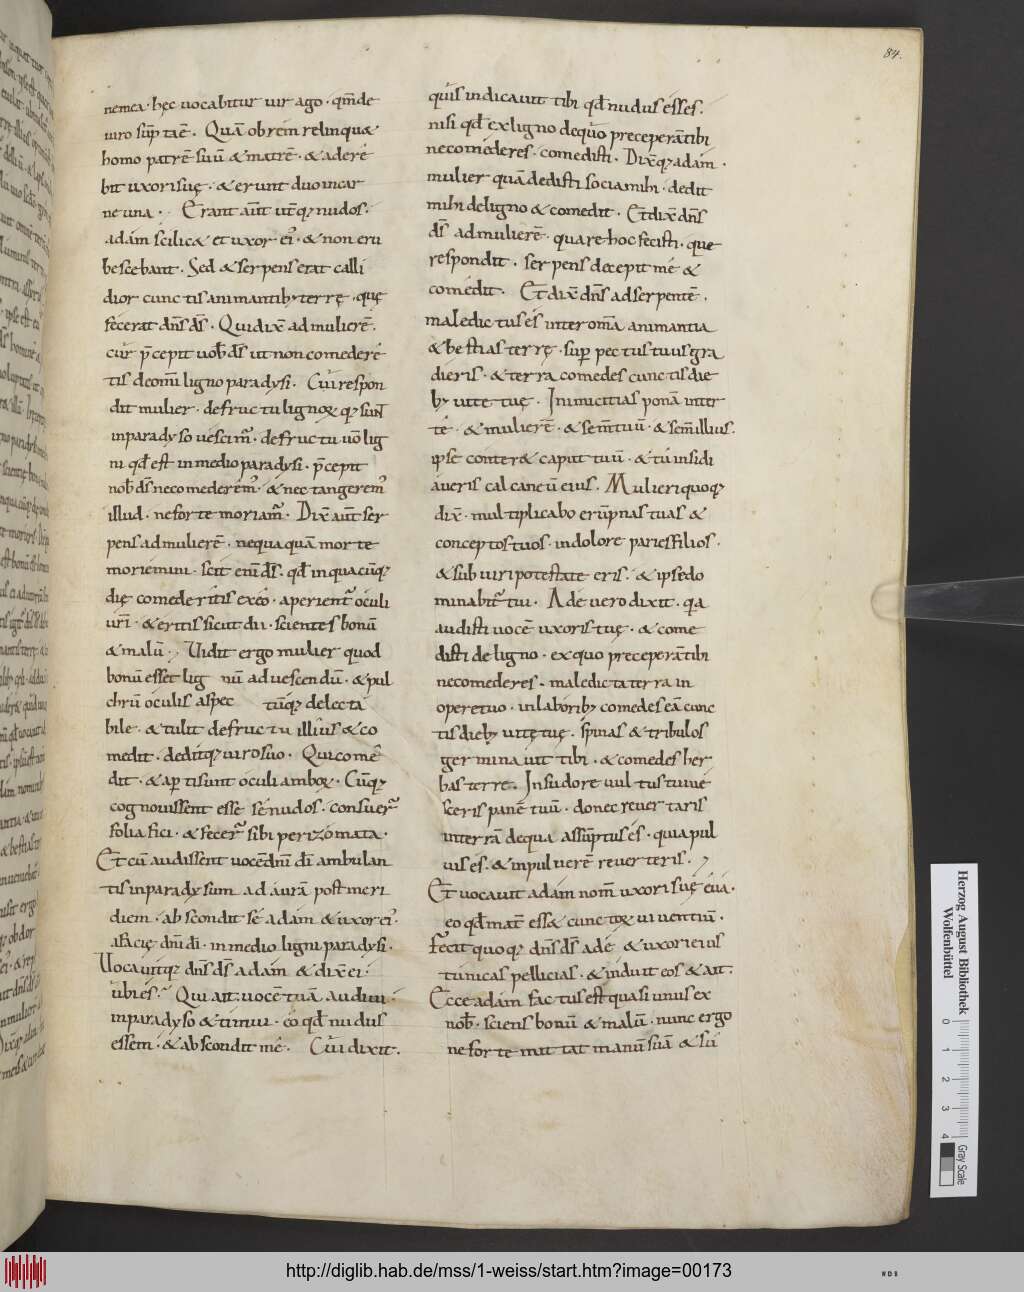 84.
nemea · hęc uocabitur uir ago · qm̄ de
uiro sūpta ē. Quā ob rem relinqu&
homo patrē suū & matrē · & aderē
bit uxori suę · & erunt duo in car
ne una · Erant aūt utēqȝ nudos ·
adam scilic& et uxor ei᾽ · & non eru
bescebant · Sed & serpens erat calli
dior cunctis animantibȝ terrę · quę
fecerat dn̄s d̄s · Qui dix̄ ad mulierē ·
cur p̄cepit uob̄ d̄s ut non comederē
tis de om̄i ligno paradysi · Cui respon
dit mulier · de fructu lignoꝝ qȝ sunt
in paradyso uescim᾽ · de fructu uō lig
ni qd̄ est in medio paradysi · p̄cepit
nob̄ d̄s ne comederem᾽ · & nec tangerem᾽
illud · ne forte moriam᾽ · Dix̄ aūt ser
pens ad mulierē · nequaquā morte
moriemini · scit eni d̄s · qd̄ in quacūqȝ
dię comederitis ex eo · aperient᾽ oculi
ur̄i · & eritis sicut dii · scientes bonū
& malū · Uidit ergo mulier quod
bonū esset lig nū ad uescendū · & pul
chrū oculis aspec tūqȝ delecta
bile · & tulit de fructu illius & co
medit · deditqȝ uiro suo · Qui come
dit · & ap̄ti sunt oculi amboꝝ · Cūqȝ
cognouissent esse se nudos · consuer᾽
folia fici · & fecer᾽ sibi perizomata ·
Et cū audissent uocē dn̄i di ambulan
tis in paradysum ad aurā post meri
diem · abscondit se adam & uxor ei᾽ ·
a facię dn̄i di · in medio ligni paradysi ·
Uocauitqȝ dn̄s d̄s adam & dix̄ ei ·
ubi es · Qui ait · uocē tuā audiui ·
in paradyso & timui · eo qd̄ nudus
essem · & abscondit me · Cui dixit ·
quis indicauit tibi qd̄ nudus esses ·
nisi qd̄ ex ligno de quo preceperā tibi
ne comederes · comedisti · Dix̄qȝ adam ·
mulier quā dedisti socia mihi · dedit
mihi de ligno & comedit · Et dix̄ dn̄s
d̄s ad mulierē · quare hoc fecisti · que
respondit · serpens decepit me &
comedit · Et dix̄ dn̄s ad serpentē ·
maledictus es inter om̄a animantia
& bestias terrę · sup̄ pectus tuus gra
dieris · & terra comedes cunctis die
bȝ uite tuę · Inimicitias ponā inter
te · & mulierē · & sem̄ tuū · & sem̄ illius ·
ipse conter& caput tuū · & tu insidi
aueris calcaneū eius · Mulieri quoqȝ
dix̄ · multiplicabo erūpnas tuas &
conceptos tuos · in dolore paries filios ·
& sub uiri potestate eris · & ipse do
minabit᾽ tui · Ade uero dixit · qa
audisti uocē uxoris tuę · & come
disti de ligno · ex quo preceperā tibi
ne comederes · maledicta terra in
opere tuo · in laboribȝ comedes eā cunc
tis diebȝ uitę tuę · spinas & tribulos
germinauit tibi · & comedes her
bas terre · In sudore uultus tui ue
sceris panē tuū · donec reuertaris
in terrā de qua assūptus es · quia pul
uis es · & in puluerē reuerteris ·
Et uocauit adam nom̄ uxori suę eua ·
eo qd̄ mat̄ ess& cunctoꝝ uiuentiū ·
Fecit quoqȝ dn̄s d̄s ade & uxori eius
tunicas pellicias · & induit eos & ait ·
Ecce adam factus est quasi unus ex
nob̄ · sciens bonū & malū · nunc ergo
ne forte mittat manū suā & su
Herzog August Bibliothek
Wolfenbüttel
0 1 2 3 4
Gray Scale
http://diglib.hab.de/mss/1-weiss/start.htm?image=00173